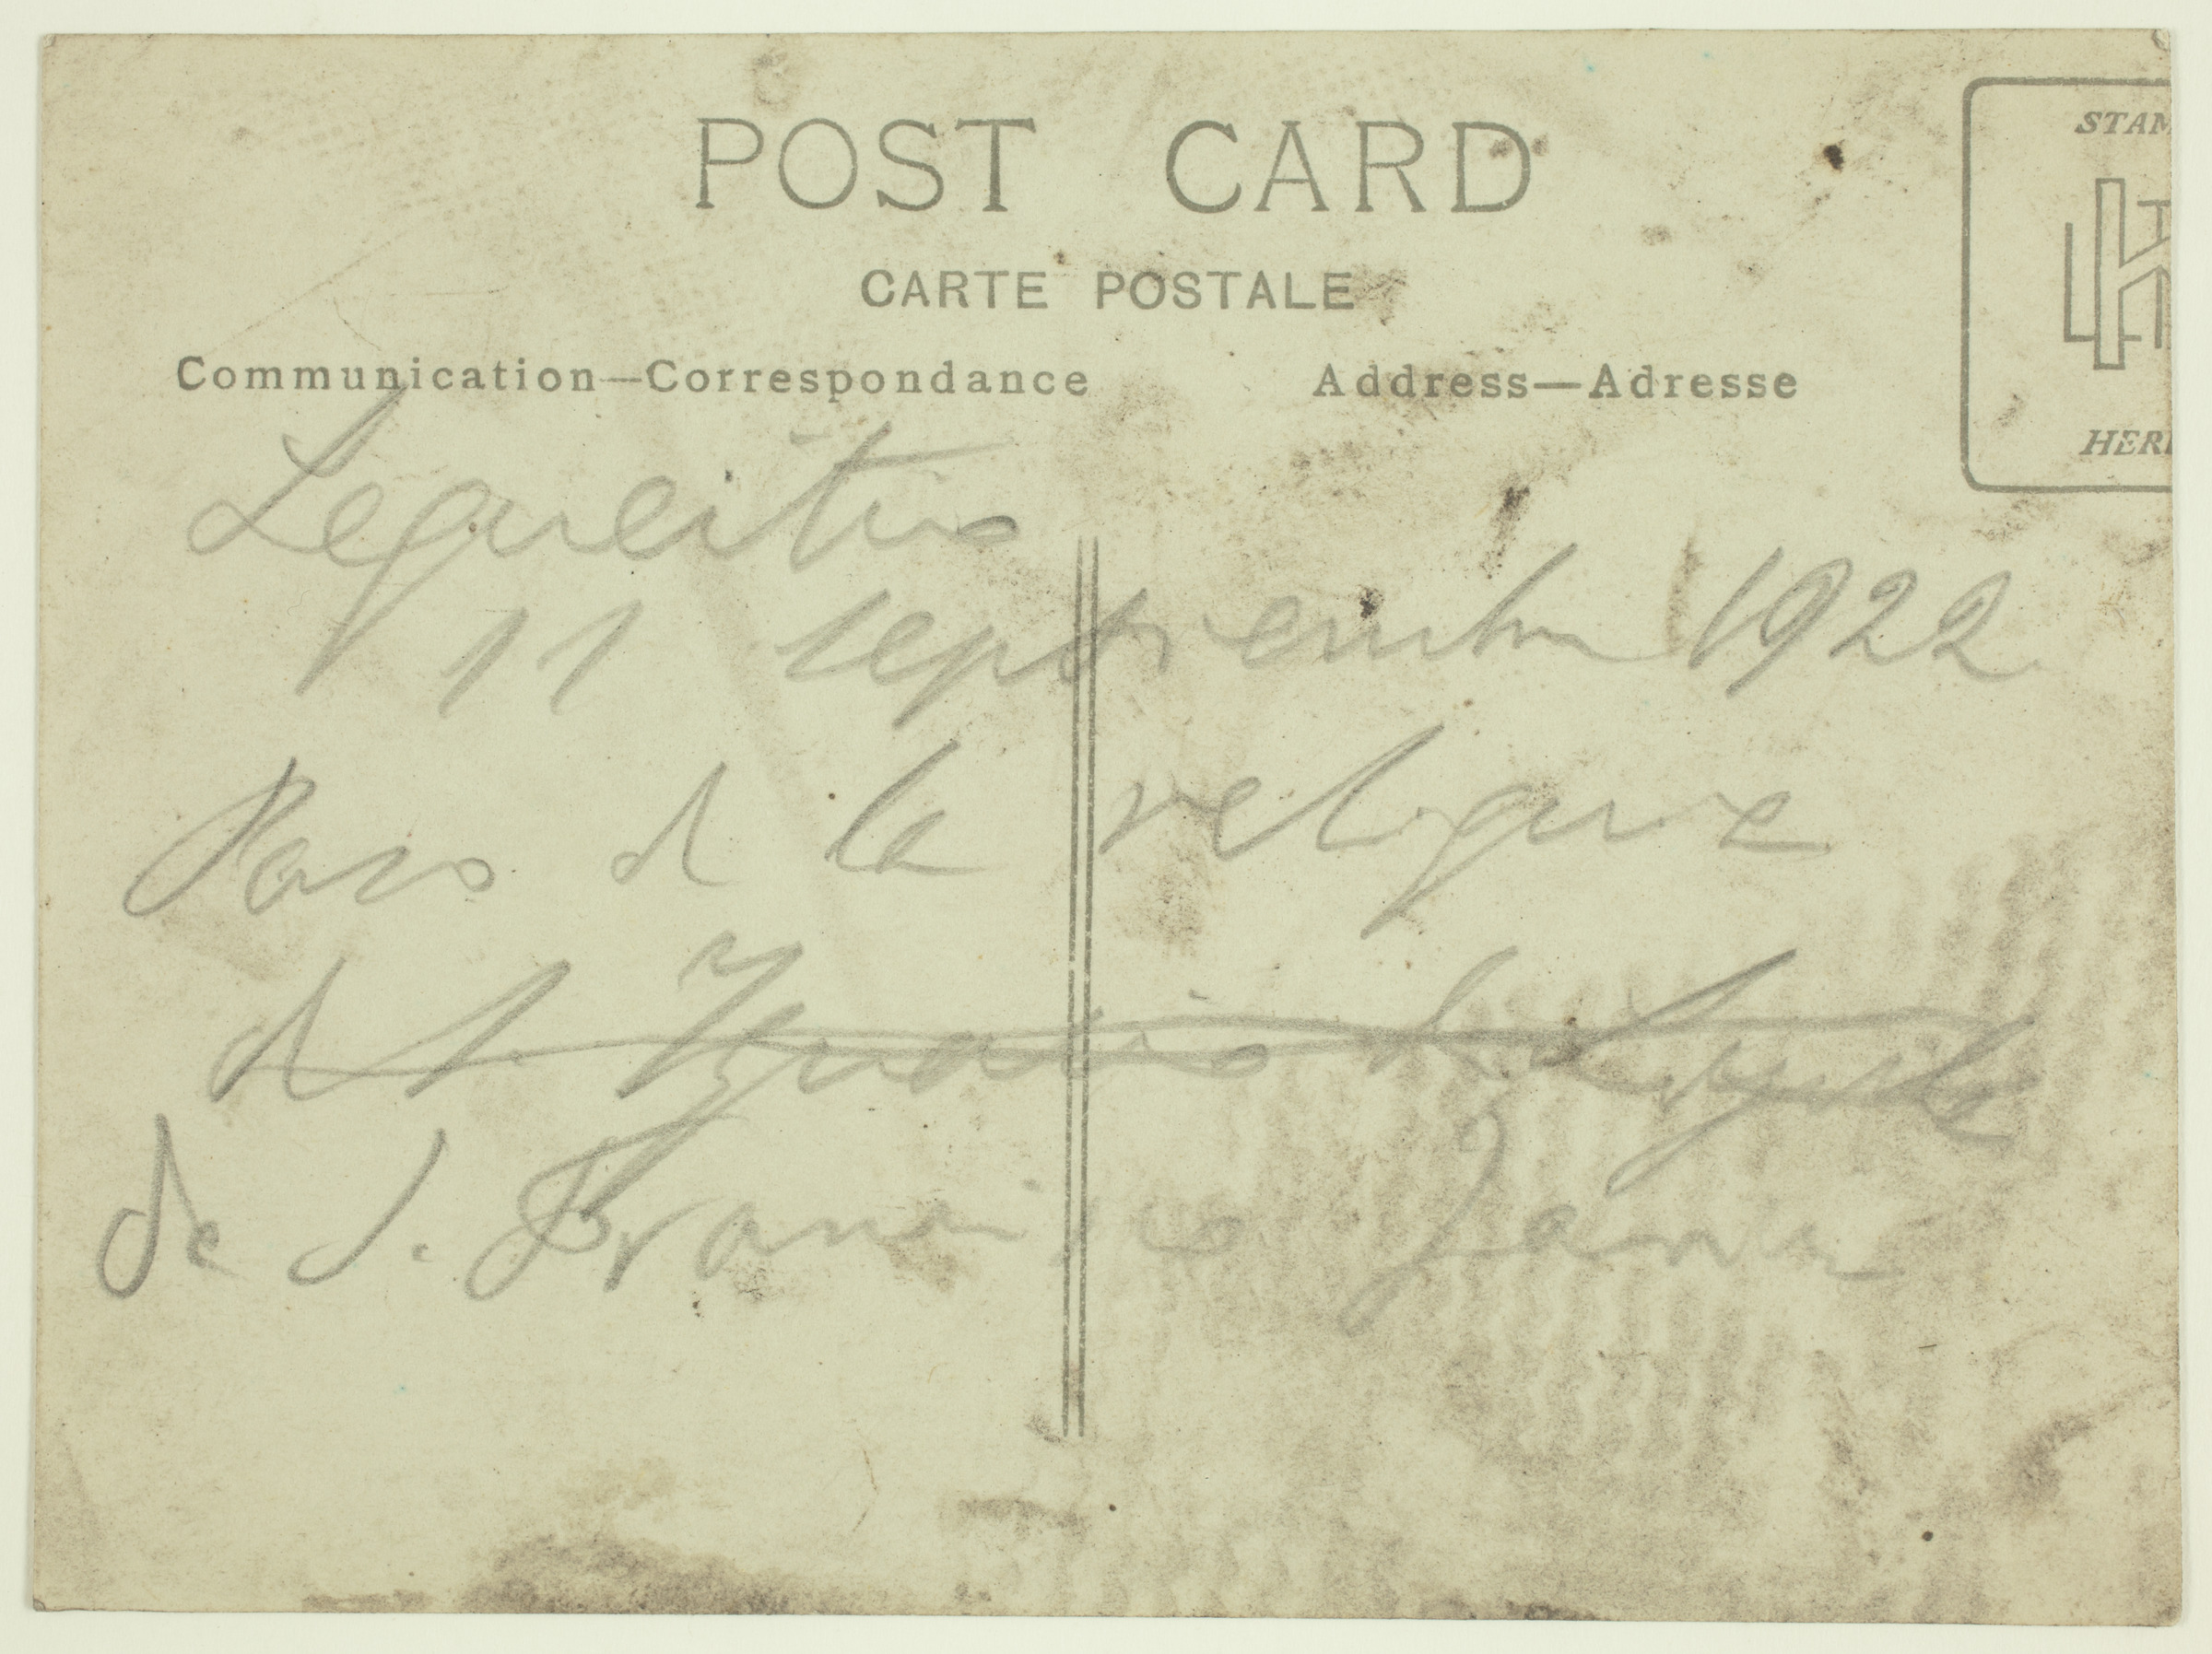 POST CARD
CARTE POSTALE
Communication—Correspondance
Address—Adresse
STAM
HERE
Lequeitio
11 septiembre 1922
Paso de la reliquia
de S. Ignacio de Loyola
de S. Francisco Javier